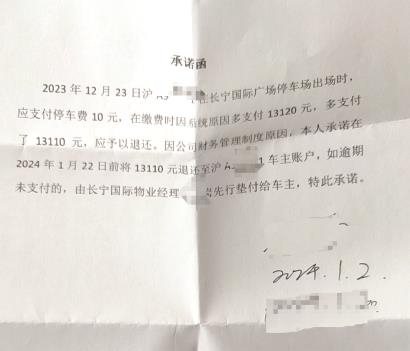 承诺函
2023 年 12 月 23 日沪 在长宁国际广场停车场出场时，
应支付停车费 10 元，在缴费时因系统原因多支付 13120 元，多支付
了 13110 元，应予以退还。因公司财务管理制度原因，本人承诺在
2024 年 1 月 22 日前将 13110 元退还至沪 A 1 车主账户，如逾期
未支付的，由长宁国际物业经理 先行垫付给车主，特此承诺。
2024.1.2.